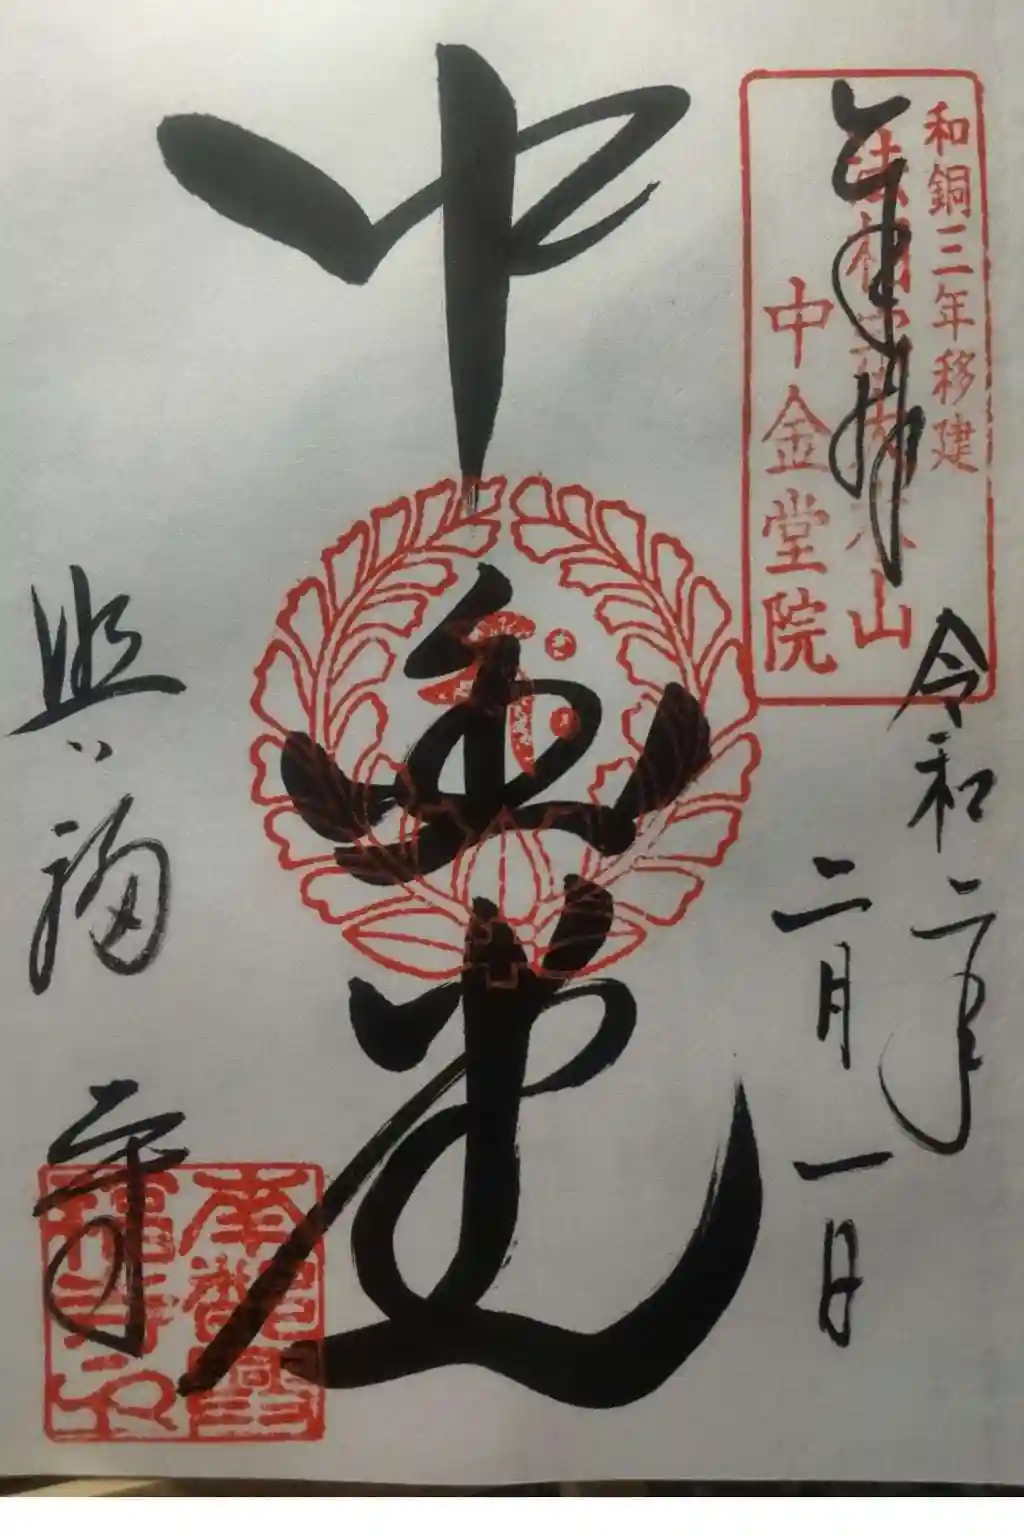 和銅三年移建
奉拝
法相宗大本山
中金堂院
令和二年
二月一日
中金堂
興福寺